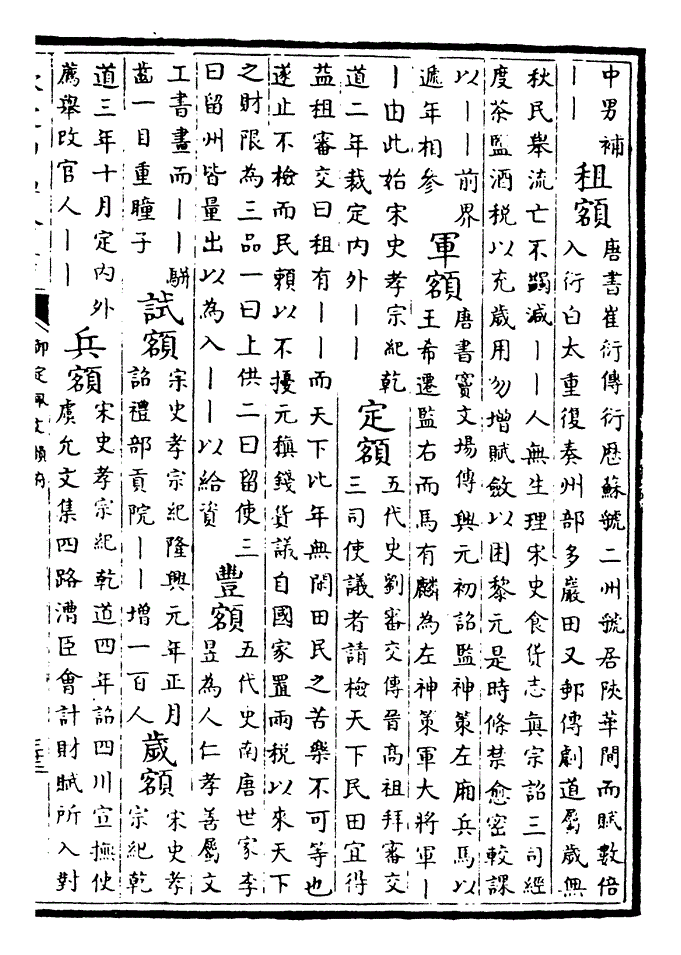 中男補
丨丨
租額
唐書崔衍傳衍歷蘇虢二州虢居陜華間而賦數倍
入衍白太重復奏州部多巖田又郵傳劇道屬歲無
秋民舉流亡不蠲減丨丨人無生理宋史食貨志眞宗詔三司經
度茶監酒稅以充歲用勿增賦斂以困黎元是時條禁愈密較課
以丨丨前界
遞年相參
軍額
唐書竇文場傳興元初詔監神策左廂兵馬以
王希遷監右而馬有麟為左神策軍大將軍丨
丨由此始宋史孝宗紀乾
道二年裁定內外丨丨
定額
五代史劉審交傳晉高祖拜審交
三司使議者請檢天下民田宜得
益租審交曰租有丨丨而天下比年無閑田民之苦樂不可等也
遂止不檢而民賴以不擾元稹錢貨議自國家置兩稅以來天下
之財限為三品一曰上供二曰留使三
曰留州皆量出以為入丨丨以給資
豐額
五代史南唐世家李
昱為人仁孝善屬文
工書畫而丨丨駢
齒一目重瞳子
試額
宋史孝宗紀隆興元年正月
詔禮部貢院丨丨增一百人
歲額
宋史孝
宗紀乾
道三年十月定內外
薦舉改官人丨丨
兵額
宋史孝宗紀乾道四年詔四川宣撫使
虞允文集四路漕臣會計財賦所入對
御定佩文韻府